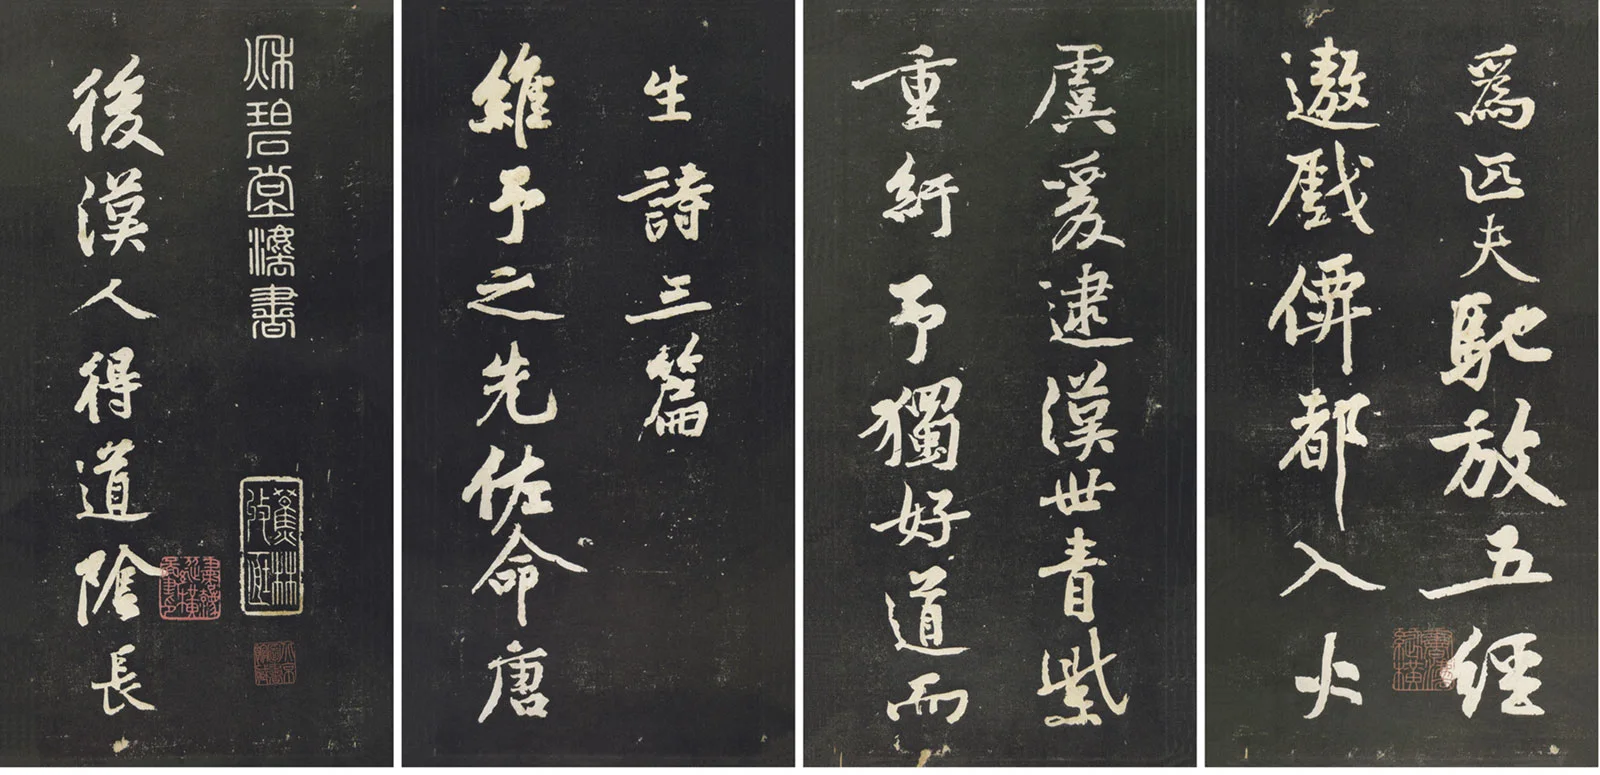 秌碧堂灋書
蕉林收藏
後漢人得道陰長
生詩三篇
維予之先佐命唐
虞爰逮漢世青紫
重紆予獨好道而
為匹夫馳放五經
遨戲僊都入火